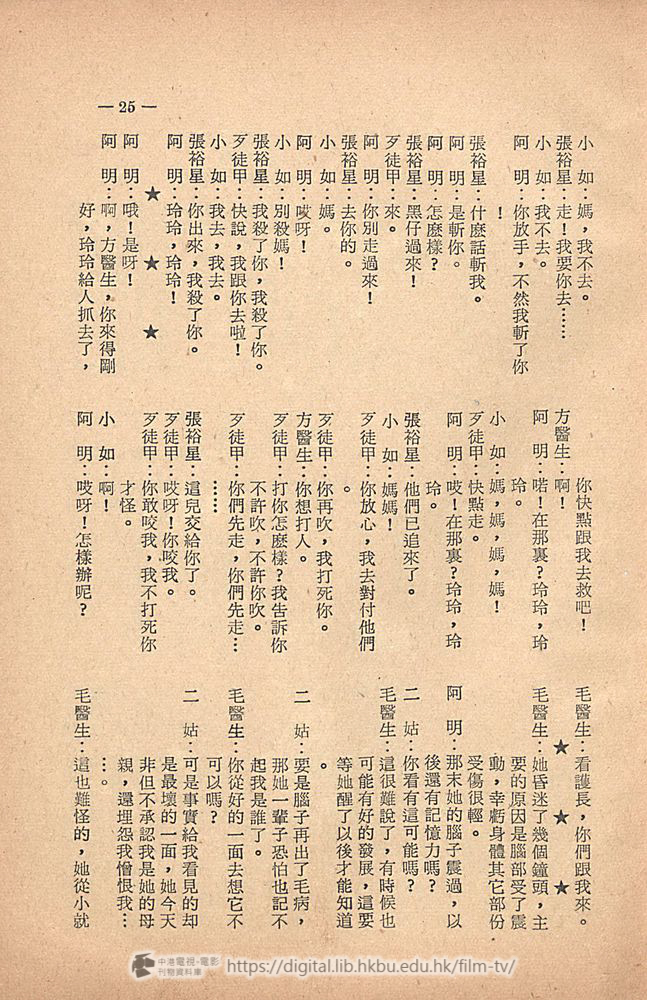 — 25 —
小　如：媽，我不去。
張裕星：走！我要你去……
小　如：我不去。
阿　明：你放手，不然我斬了你
！
張裕星：什麼話斬我。
阿　明：是斬你。
阿　明：怎麼樣？
張裕星：黑仔過來！
歹徒甲：來。
阿　明：你別走過來！
張裕星：去你的。
小　如：媽。
阿　明：哎呀！
小　如：別殺媽！
張裕星：我殺了你，我殺了你。
歹徒甲：快說，我跟你去啦！
小　如：我去，我去。
張裕星：你出來，我殺了你。
阿　明：玲玲，玲玲！
★　★　★
阿　明：哦！是呀！
阿　明：啊，方醫生，你來得剛
好，玲玲給人抓去了，
你快點跟我去救吧！
方醫生：啊！
阿　明：喏！在那裏？玲玲，玲
玲。
小　如：媽，媽，媽，媽！
歹徒甲：快點走。
阿　明：哎！在那裏？玲玲，玲
玲。
張裕星：他們已追來了。
小　如：媽媽！
歹徒甲：你放心，我去對付他們
。
歹徒甲：你再吹，我打死你。
方醫生：你想打人。
歹徒甲：打你怎麽樣？我告訴你
不許吹，不許你吹。
歹徒甲：你們先走，你們先走…
……
張裕星：這兒交給你了。
歹徒甲：哎呀！你咬我。
歹徒甲：你敢咬我，我不打死你
才怪。
小　如：啊！
阿　明：哎呀！怎樣辦呢？
毛醫生：看護長，你們跟我來。
★　★　★
毛醫生：她昏迷了幾個鐘頭，主
要的原因是腦部受了震
動，幸虧身體其它部份，
受傷很輕。
阿　明：那末她的腦子震過，以
後還有記憶力嗎？
二　姑：你看有這可能嗎？
毛醫生：這很難說了，有時候也
可能有好的發展，這要
等她醒了以後才能知道
。
二　姑：要是腦子再出了毛病，
那她一輩子恐怕也記不
起我是誰了。
毛醫生：你從好的一面去想它不
可以嗎？
二　姑：可是事實給我看見的却
是最壞的一面，她今天
非但不承認我是她的母
親，還埋怨我憎恨我…
…。
毛醫生：這也難怪的，她從小就
中港電視·電影
刊物資料庫
https://digital.lib.hkbu.edu.hk/film-tv/